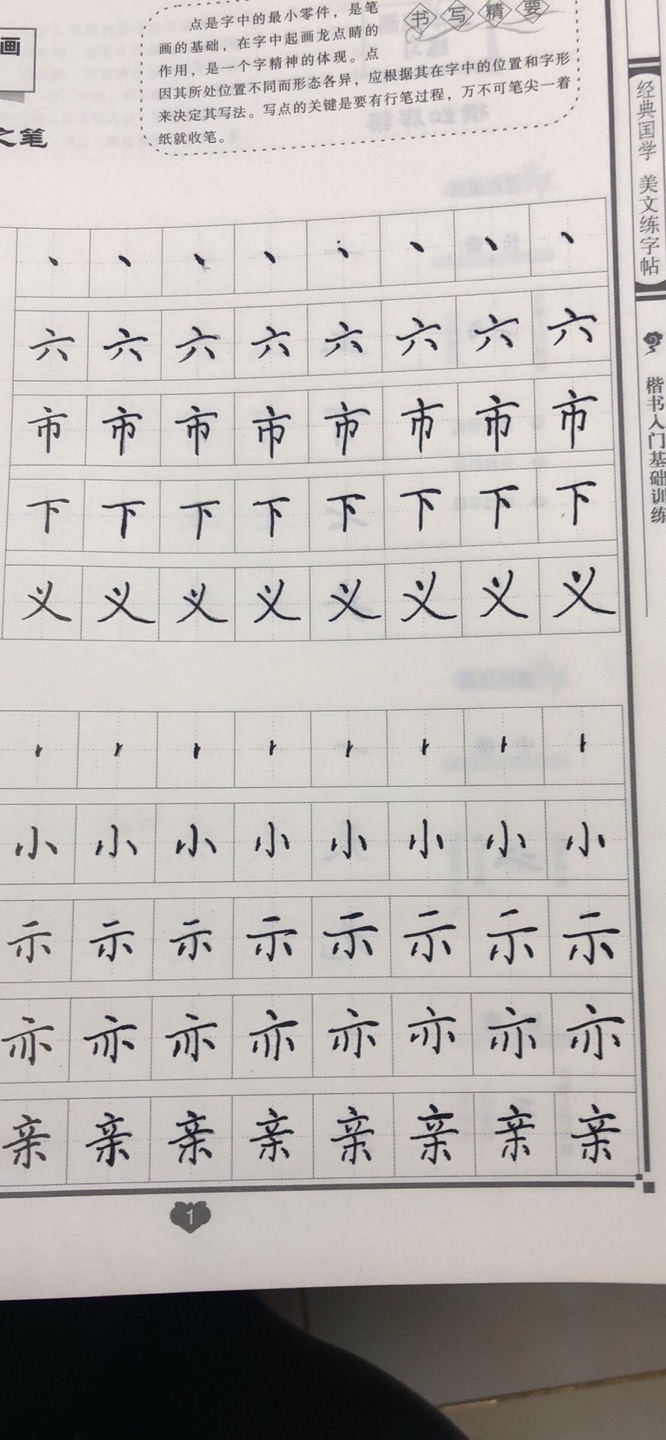 画
之笔
书写精要
点是字中的最小零件，是笔
画的基础，在字中起画龙点睛的
作用，是一个字精神的体现。点
因其所处位置不同而形态各异，应根据其在字中的位置和字形
来决定其写法。写点的关键是要有行笔过程，万不可笔尖一着
纸就收笔。
丶丶丶丶丶丶丶丶
六六六六六六六六
市市市市市市市市
下下下下下下下下
义义义义义义义义
小小小小小小小小
示示示示示示示示
亦亦亦亦亦亦亦亦
亲亲亲亲亲亲亲亲
1
经典国学 美文练字帖
楷书入门基础训练